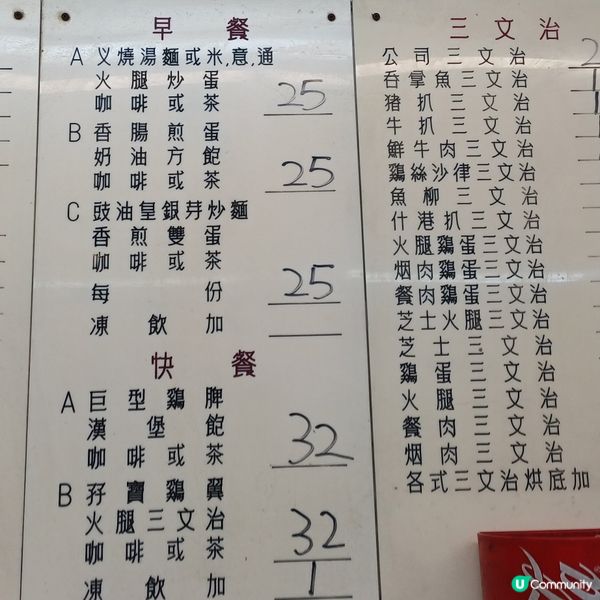 早餐
A 义燒湯麵或米,意,通
火腿炒蛋
咖啡或茶 25
B 香腸煎蛋
奶油方飽
咖啡或茶 25
C 豉油皇銀芽炒麵
香煎雙蛋
咖啡或茶
每份 25
凍飲加
快餐
A 巨型鷄脾
漢堡飽
咖啡或茶 32
B 孖寶鷄翼
火腿三文治
咖啡或茶 32
凍飲加 1
三文治
公司三文治 2
吞拿魚三文治
猪扒三文治
牛扒三文治
鮮牛肉三文治
鷄絲沙律三文治
魚柳三文治
什港扒三文治
火腿鷄蛋三文治
烟肉鷄蛋三文治
餐肉鷄蛋三文治
芝士火腿三文治
芝士三文治
鷄蛋三文治
火腿三文治
餐肉三文治
烟肉三文治
各式三文治烘底加
U Community